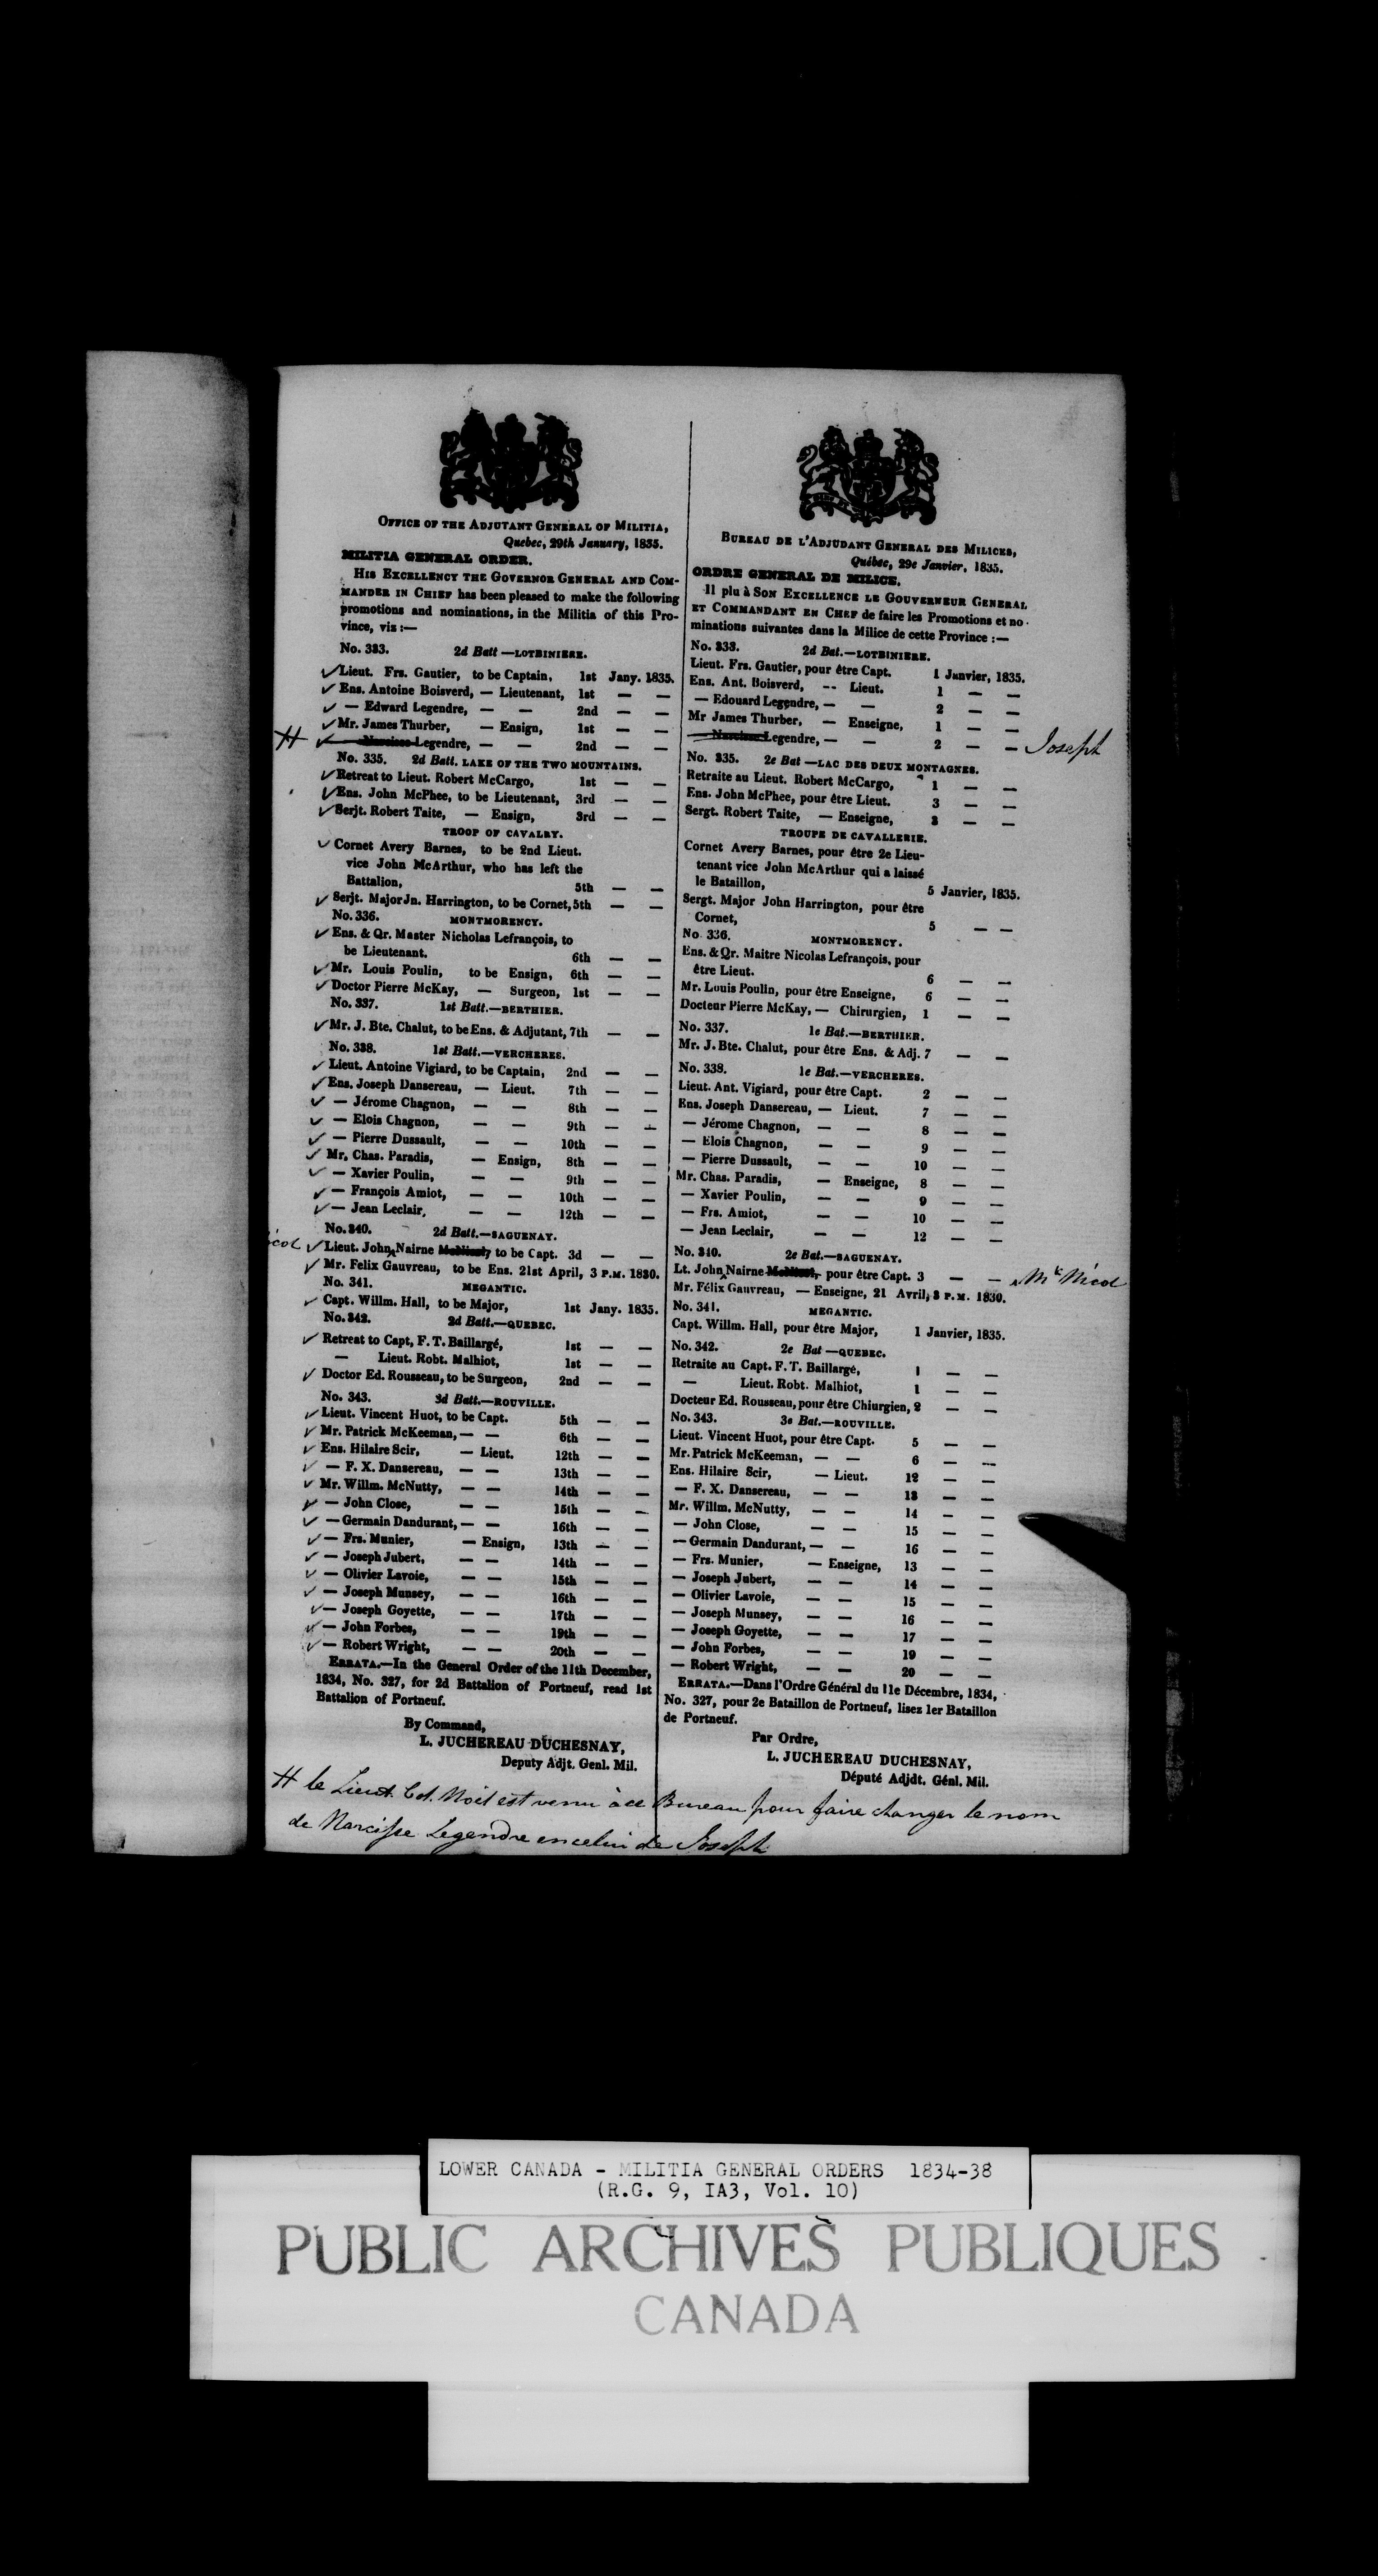 OFFICE OF THE ADJUTANT GENERAL OF MILITIA,
Quebec, 29th January, 1835.
MILITIA GENERAL ORDER.
HIS EXCELLENCY THE GOVERNOR GENERAL AND COM-
MANDER IN CHIEF has been pleased to make the following
promotions and nominations, in the Militia of this Pro-
vince, viz :—
No. 333. 2d Batt —LOTBINIERE.
Lieut. Frs. Gautier, to be Captain, 1st Jany. 1835.
Ens. Antoine Boisverd, — Lieutenant, 1st — —
— Edward Legendre, — — 2nd — —
Mr. James Thurber, — Ensign, 1st — —
H — Narcisse Legendre, — — 2nd — —
No. 335. 2d Batt. LAKE OF THE TWO MOUNTAINS.
Retreat to Lieut. Robert McCargo, 1st — —
Ens. John McPhee, to be Lieutenant, 3rd — —
Serjt. Robert Taite, — Ensign, 3rd — —
TROOP OF CAVALRY.
Cornet Avery Barnes, to be 2nd Lieut.
vice John McArthur, who has left the
Battalion, 5th — —
Serjt. Major Jn. Harrington, to be Cornet, 5th — —
No. 336. MONTMORENCY.
Ens. & Qr. Master Nicholas Lefrançois, to
be Lieutenant. 6th — —
Mr. Louis Poulin, to be Ensign, 6th — —
Doctor Pierre McKay, — Surgeon, 1st — —
No. 337. 1st Batt.—BERTHIER.
Mr. J. Bte. Chalut, to be Ens. & Adjutant, 7th — —
No. 338. 1st Batt.—VERCHERES.
Lieut. Antoine Vigiard, to be Captain, 2nd — —
Ens. Joseph Dansereau, — Lieut. 7th — —
— Jérome Chagnon, — — 8th — —
— Elois Chagnon, — — 9th — —
— Pierre Dussault, — — 10th — —
Mr. Chas. Paradis, — Ensign, 8th — —
— Xavier Poulin, — — 9th — —
— François Amiot, — — 10th — —
— Jean Leclair, — — 12th — —
No. 340. 2d Batt.—SAGUENAY.
icol Lieut. John Nairne McNicol, to be Capt. 3d — —
Mr. Felix Gauvreau, to be Ens. 21st April, 3 P.M. 1830.
No. 341. MEGANTIC.
Capt. Willm. Hall, to be Major, 1st Jany. 1835.
No. 342. 2d Batt.—QUEBEC.
Retreat to Capt, F. T. Baillargé, 1st — —
— Lieut. Robt. Malhiot, 1st — —
Doctor Ed. Rousseau, to be Surgeon, 2nd — —
No. 343. 3d Batt.—ROUVILLE.
Lieut. Vincent Huot, to be Capt. 5th — —
Mr. Patrick McKeeman, — — 6th — —
Ens. Hilaire Scir, — Lieut. 12th — —
— F. X. Dansereau, — — 13th — —
Mr. Willm. McNutty, — — 14th — —
— John Close, — — 15th — —
— Germain Dandurant, — — 16th — —
— Frs. Munier, — Ensign, 13th — —
— Joseph Jubert, — — 14th — —
— Olivier Lavoie, — — 15th — —
— Joseph Munsey, — — 16th — —
— Joseph Goyette, — — 17th — —
— John Forbes, — — 19th — —
— Robert Wright, — — 20th — —
ERRATA.—In the General Order of the 11th December,
1834, No. 327, for 2d Battalion of Portneuf, read 1st
Battalion of Portneuf.
By Command,
L. JUCHEREAU DUCHESNAY,
Deputy Adjt. Genl. Mil.
BUREAU DE L'ADJUDANT GENERAL DES MILICES,
Québec, 29e Janvier, 1835.
ORDRE GENERAL DE MILICE.
Il plu à SON EXCELLENCE LE GOUVERNEUR GENERAL
ET COMMANDANT EN CHEF de faire les Promotions et no-
minations suivantes dans la Milice de cette Province :—
No. 333. 2d Bat.—LOTBINIERE.
Lieut. Frs. Gautier, pour être Capt. 1 Janvier, 1835.
Ens. Ant. Boisverd, -- Lieut. 1 — —
— Edouard Legendre, — — 2 — —
Mr James Thurber, — Enseigne, 1 — —
— Narcisse Legendre, — — 2 — — Joseph
No. 335. 2e Bat —LAC DES DEUX MONTAGNES.
Retraite au Lieut. Robert McCargo, 1 — —
Ens. John McPhee, pour être Lieut. 3 — —
Sergt. Robert Taite, — Enseigne, 3 — —
TROUPE DE CAVALLERIE.
Cornet Avery Barnes, pour être 2e Lieu-
tenant vice John McArthur qui a laissé
le Bataillon, 5 Janvier, 1835.
Sergt. Major John Harrington, pour être
Cornet, 5 — —
No 336. MONTMORENCY.
Ens. & Qr. Maitre Nicolas Lefrançois, pour
être Lieut. 6 — —
Mr. Louis Poulin, pour être Enseigne, 6 — —
Docteur Pierre McKay, — Chirurgien, 1 — —
No. 337. 1e Bat.—BERTHIER.
Mr. J. Bte. Chalut, pour être Ens. & Adj. 7 — —
No. 338. 1e Bat.—VERCHERES.
Lieut. Ant. Vigiard, pour être Capt. 2 — —
Ens. Joseph Dansereau, — Lieut. 7 — —
— Jérome Chagnon, — — 8 — —
— Elois Chagnon, — — 9 — —
— Pierre Dussault, — — 10 — —
Mr. Chas. Paradis, — Enseigne, 8 — —
— Xavier Poulin, — — 9 — —
— Frs. Amiot, — — 10 — —
— Jean Leclair, — — 12 — —
No. 340. 2e Bat.—SAGUENAY.
Lt. John Nairne McNicol, pour être Capt. 3 — — McNicol
Mr. Félix Gauvreau, — Enseigne, 21 Avril, 3 P.M. 1830.
No. 341. MEGANTIC.
Capt. Willm. Hall, pour être Major, 1 Janvier, 1835.
No. 342. 2e Bat —QUEBEC.
Retraite au Capt. F. T. Baillargé, 1 — —
— Lieut. Robt. Malhiot, 1 — —
Docteur Ed. Rousseau, pour être Chiurgien, 2 — —
No. 343. 3e Bat.—ROUVILLE.
Lieut. Vincent Huot, pour être Capt. 5 — —
Mr. Patrick McKeeman, — — 6 — —
Ens. Hilaire Scir, — Lieut. 12 — —
— F. X. Dansereau, — — 13 — —
Mr. Willm. McNutty, — — 14 — —
— John Close, — — 15 — —
— Germain Dandurant, — — 16 — —
— Frs. Munier, — Enseigne, 13 — —
— Joseph Jubert, — — 14 — —
— Olivier Lavoie, — — 15 — —
— Joseph Munsey, — — 16 — —
— Joseph Goyette, — — 17 — —
— John Forbes, — — 19 — —
— Robert Wright, — — 20 — —
ERRATA.—Dans l'Ordre Général du 11e Décembre, 1834,
No. 327, pour 2e Bataillon de Portneuf, lisez 1er Bataillon
de Portneuf.
Par Ordre,
L. JUCHEREAU DUCHESNAY,
Député Adjdt. Génl. Mil.
H le Lieut. Col. Noël est venu à ce Bureau pour faire changer le nom
de Narcisse Legendre en celui de Joseph
LOWER CANADA - MILITIA GENERAL ORDERS 1834-38
(R.G. 9, IA3, Vol. 10)
PUBLIC ARCHIVES PUBLIQUES
CANADA